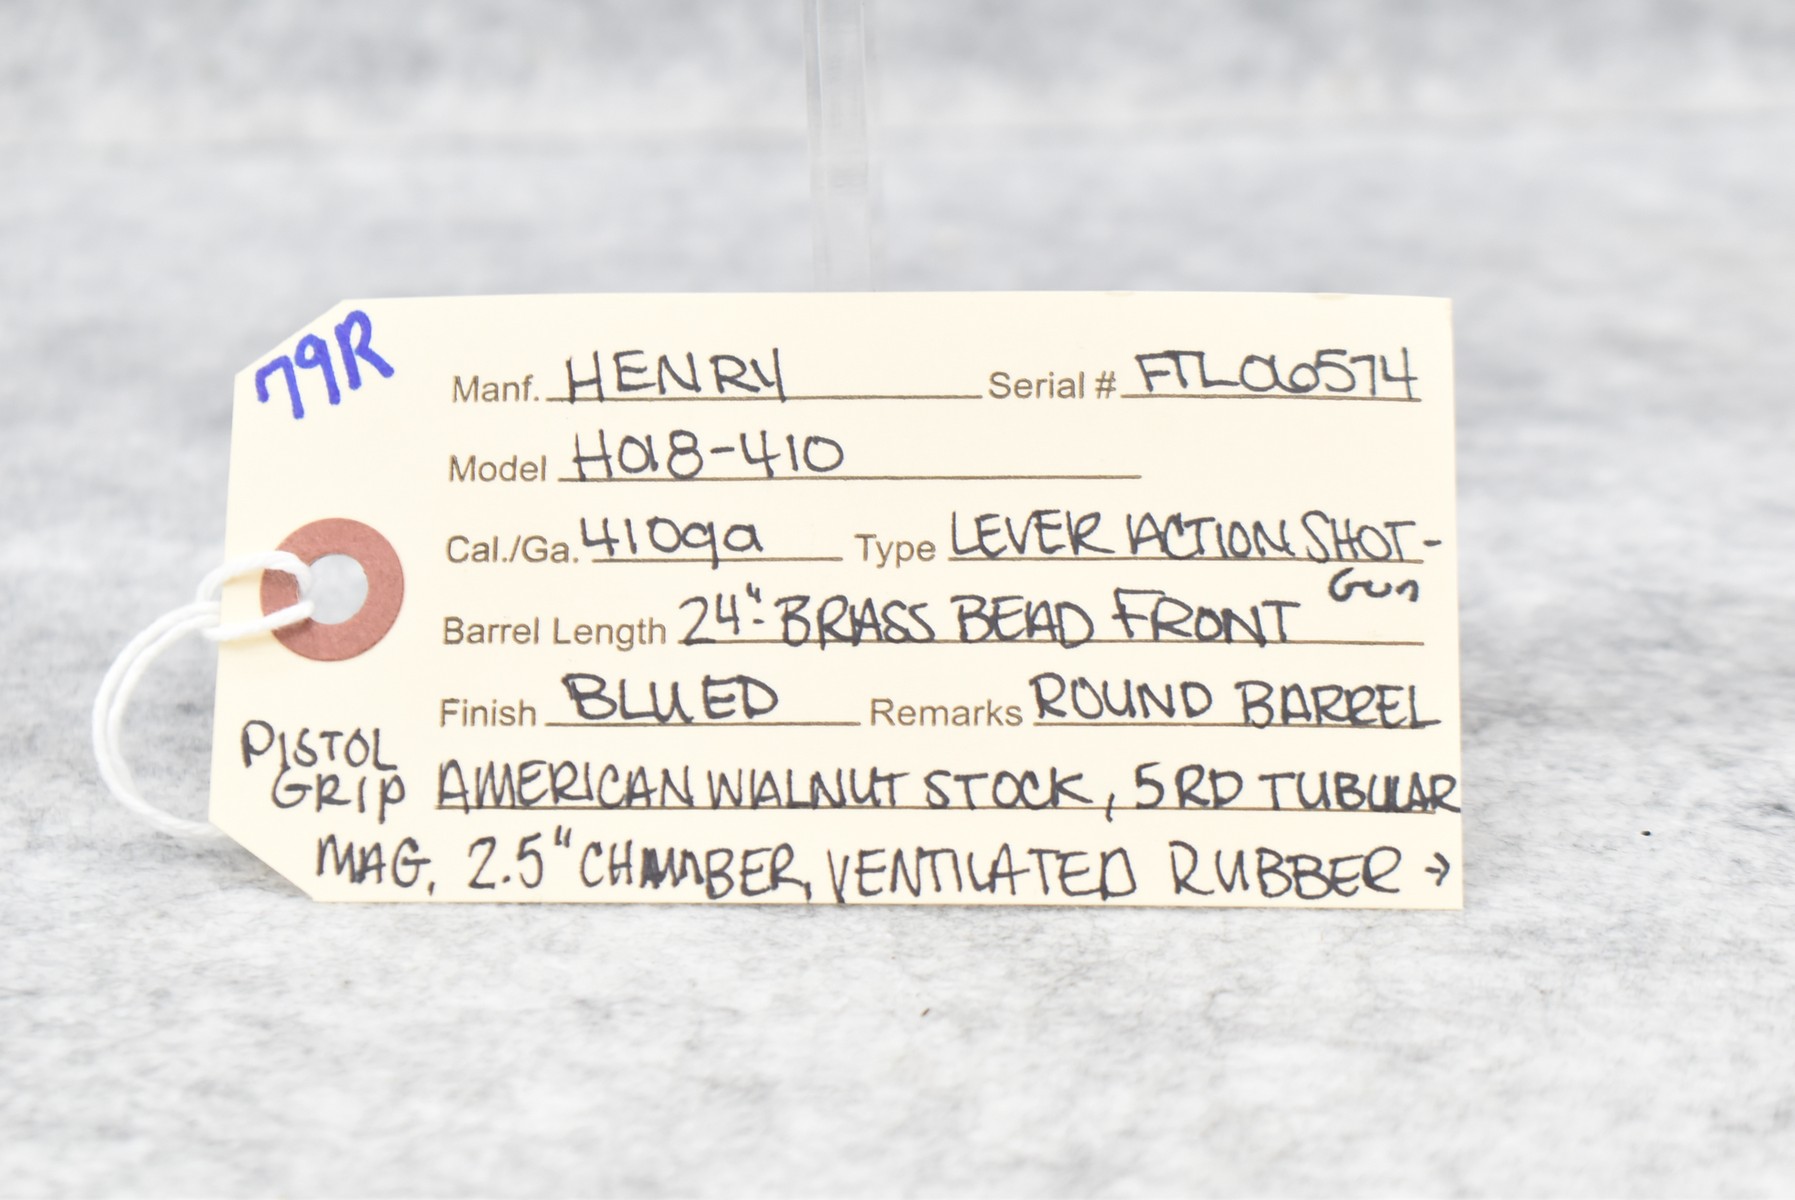 79R
Manf. HENRY Serial # FTL06574
Model H018-410
Cal./Ga. 410ga Type LEVER ACTION SHOT-
GUN
Barrel Length 24"-BRASS BEAD FRONT
Finish BLUED Remarks ROUND BARREL
PISTOL
GRIP AMERICAN WALNUT STOCK, 5RD TUBULAR
MAG, 2.5" CHAMBER, VENTILATED RUBBER →